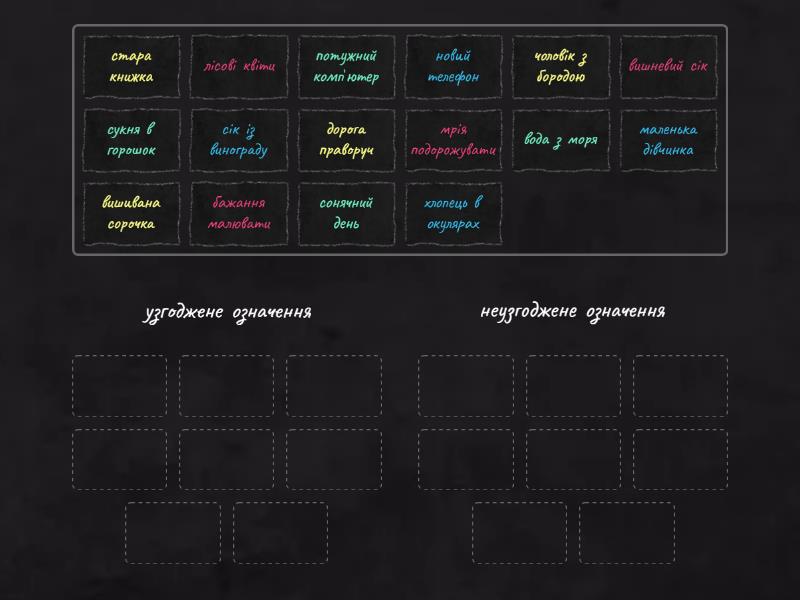 стара
книжка
лісові квіти
потужний
комп'ютер
новий
телефон
чоловік з
бородою
вишневий сік
сукня в
горошок
сік із
винограду
дорога
праворуч
мрія
подорожувати
вода з моря
маленька
дівчинка
вишивана
сорочка
бажання
малювати
сонячний
день
хлопець в
окулярах
узгоджене означення
неузгоджене означення